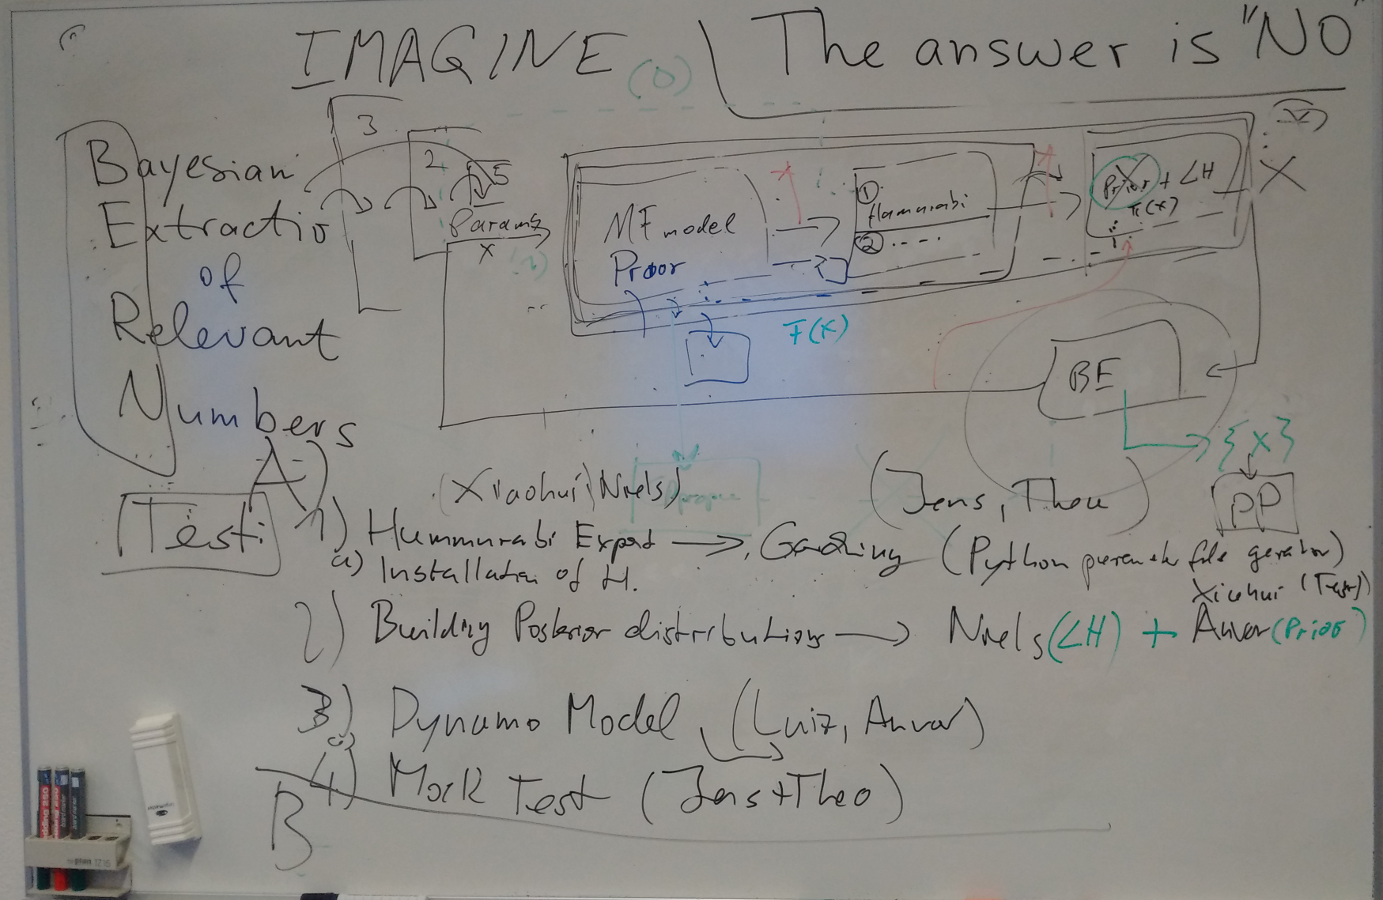 IMAGINE
The answer is "NO"
(0)
Bayesian
Extractio
of
Relevant
Numbers
3
2
5
Params
X
MF model
Prior
①
Hammurabi
② ....
Prior + LH
π(x)
X
F(x)
BE
{x}
PP
A)
Test:
(Xiaohui\Niels)
(Jens, Theo)
1) Hummurabi Expert → Gaching (Python
a) Installation of H.
Xiaohui (Test)
2) Building Posterior distributions → Niels (LH) + Anvar (Prior)
3) Dynamo Model (Luiz, Anvar)
4) Mock Test (Jens + Theo)
B